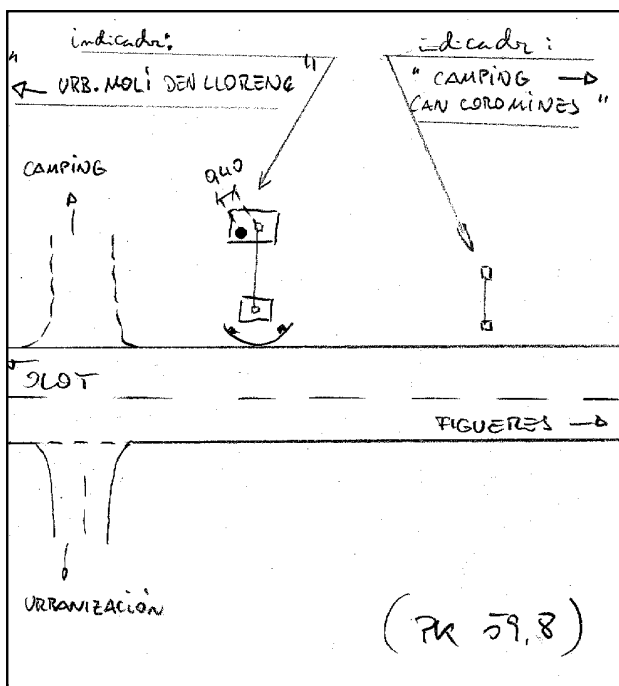 indicador:
" ← URB. MOLÍ DEN LLORENÇ "
indicador:
" CAMPING →
CAN COROMINES "
CAMPING
0,40
OLOT
FIGUERES →
URBANIZACIÓN
(PK 59,8)